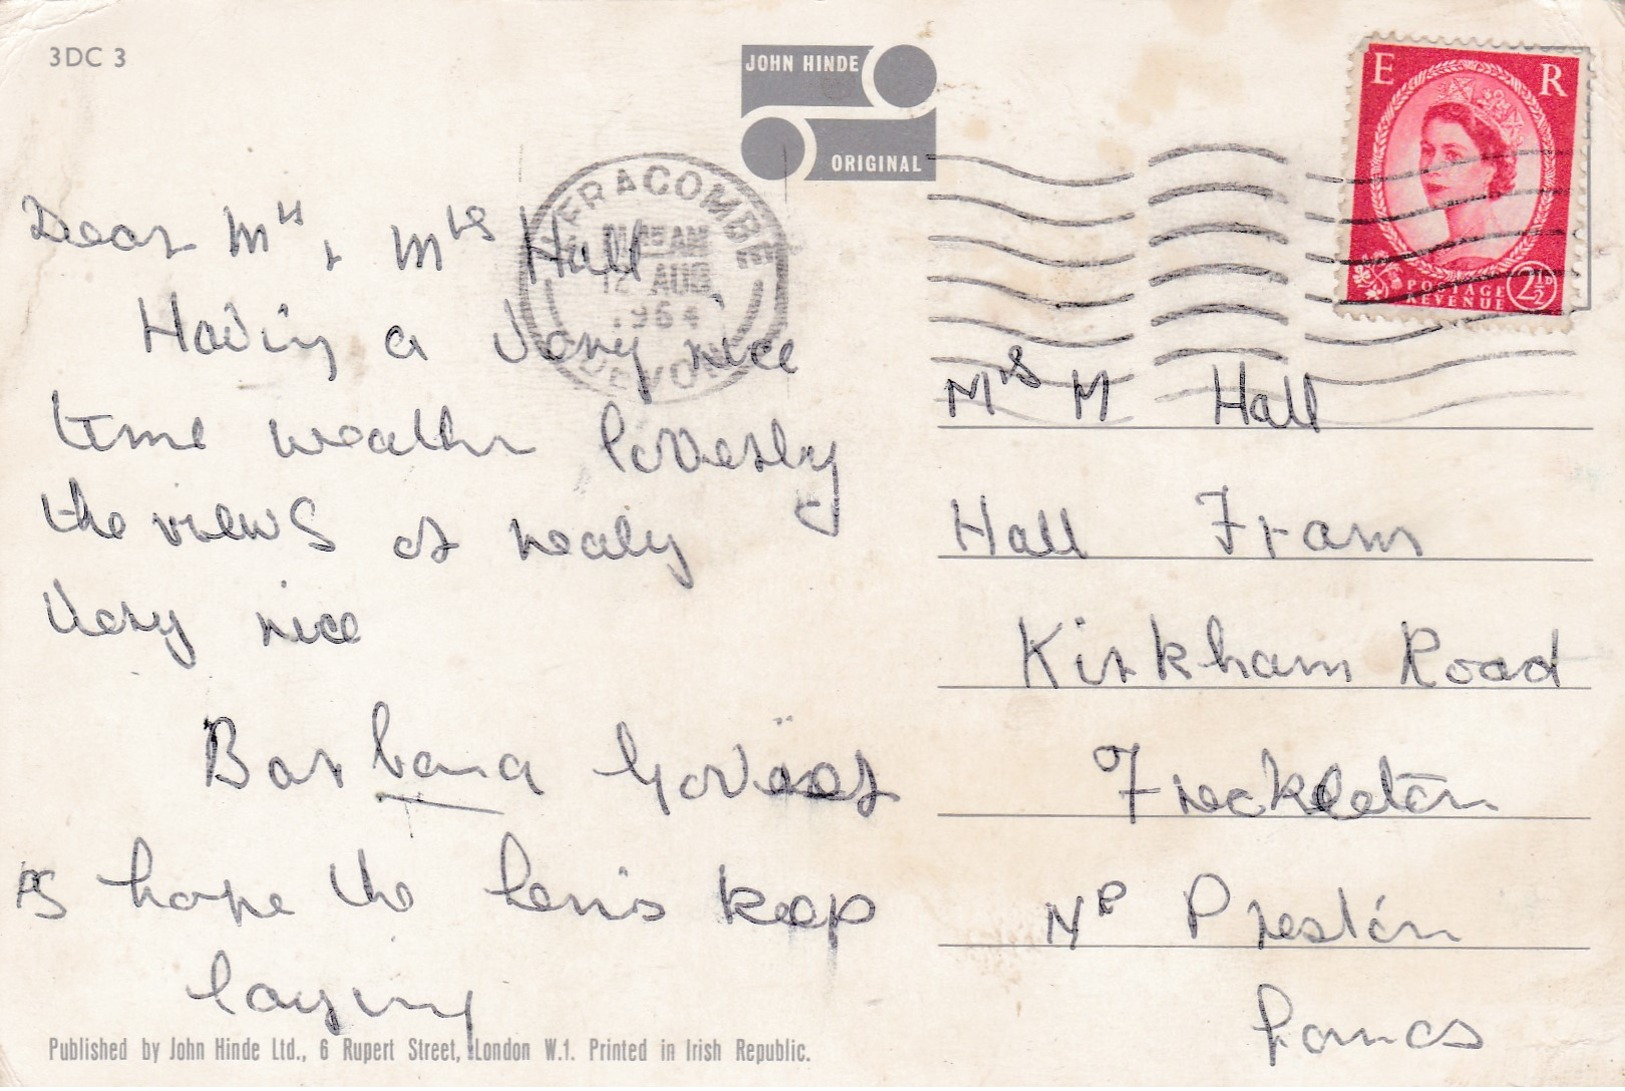 3DC 3
JOHN HINDE
ORIGINAL
E R
POSTAGE
REVENUE
2½D
ILFRACOMBE
AM
12 AUG
1964
DEVON
Dear Mr + Mrs Hall
Having a very nice
time weather loverly
the views is realy
very nice
Barbara
PS hope the hens keep
laying
Mrs M Hall
Hall Fram
Kirkham Road
Freckleton
Nr Preston
Lancs
Published by John Hinde Ltd., 6 Rupert Street, London W.1. Printed in Irish Republic.